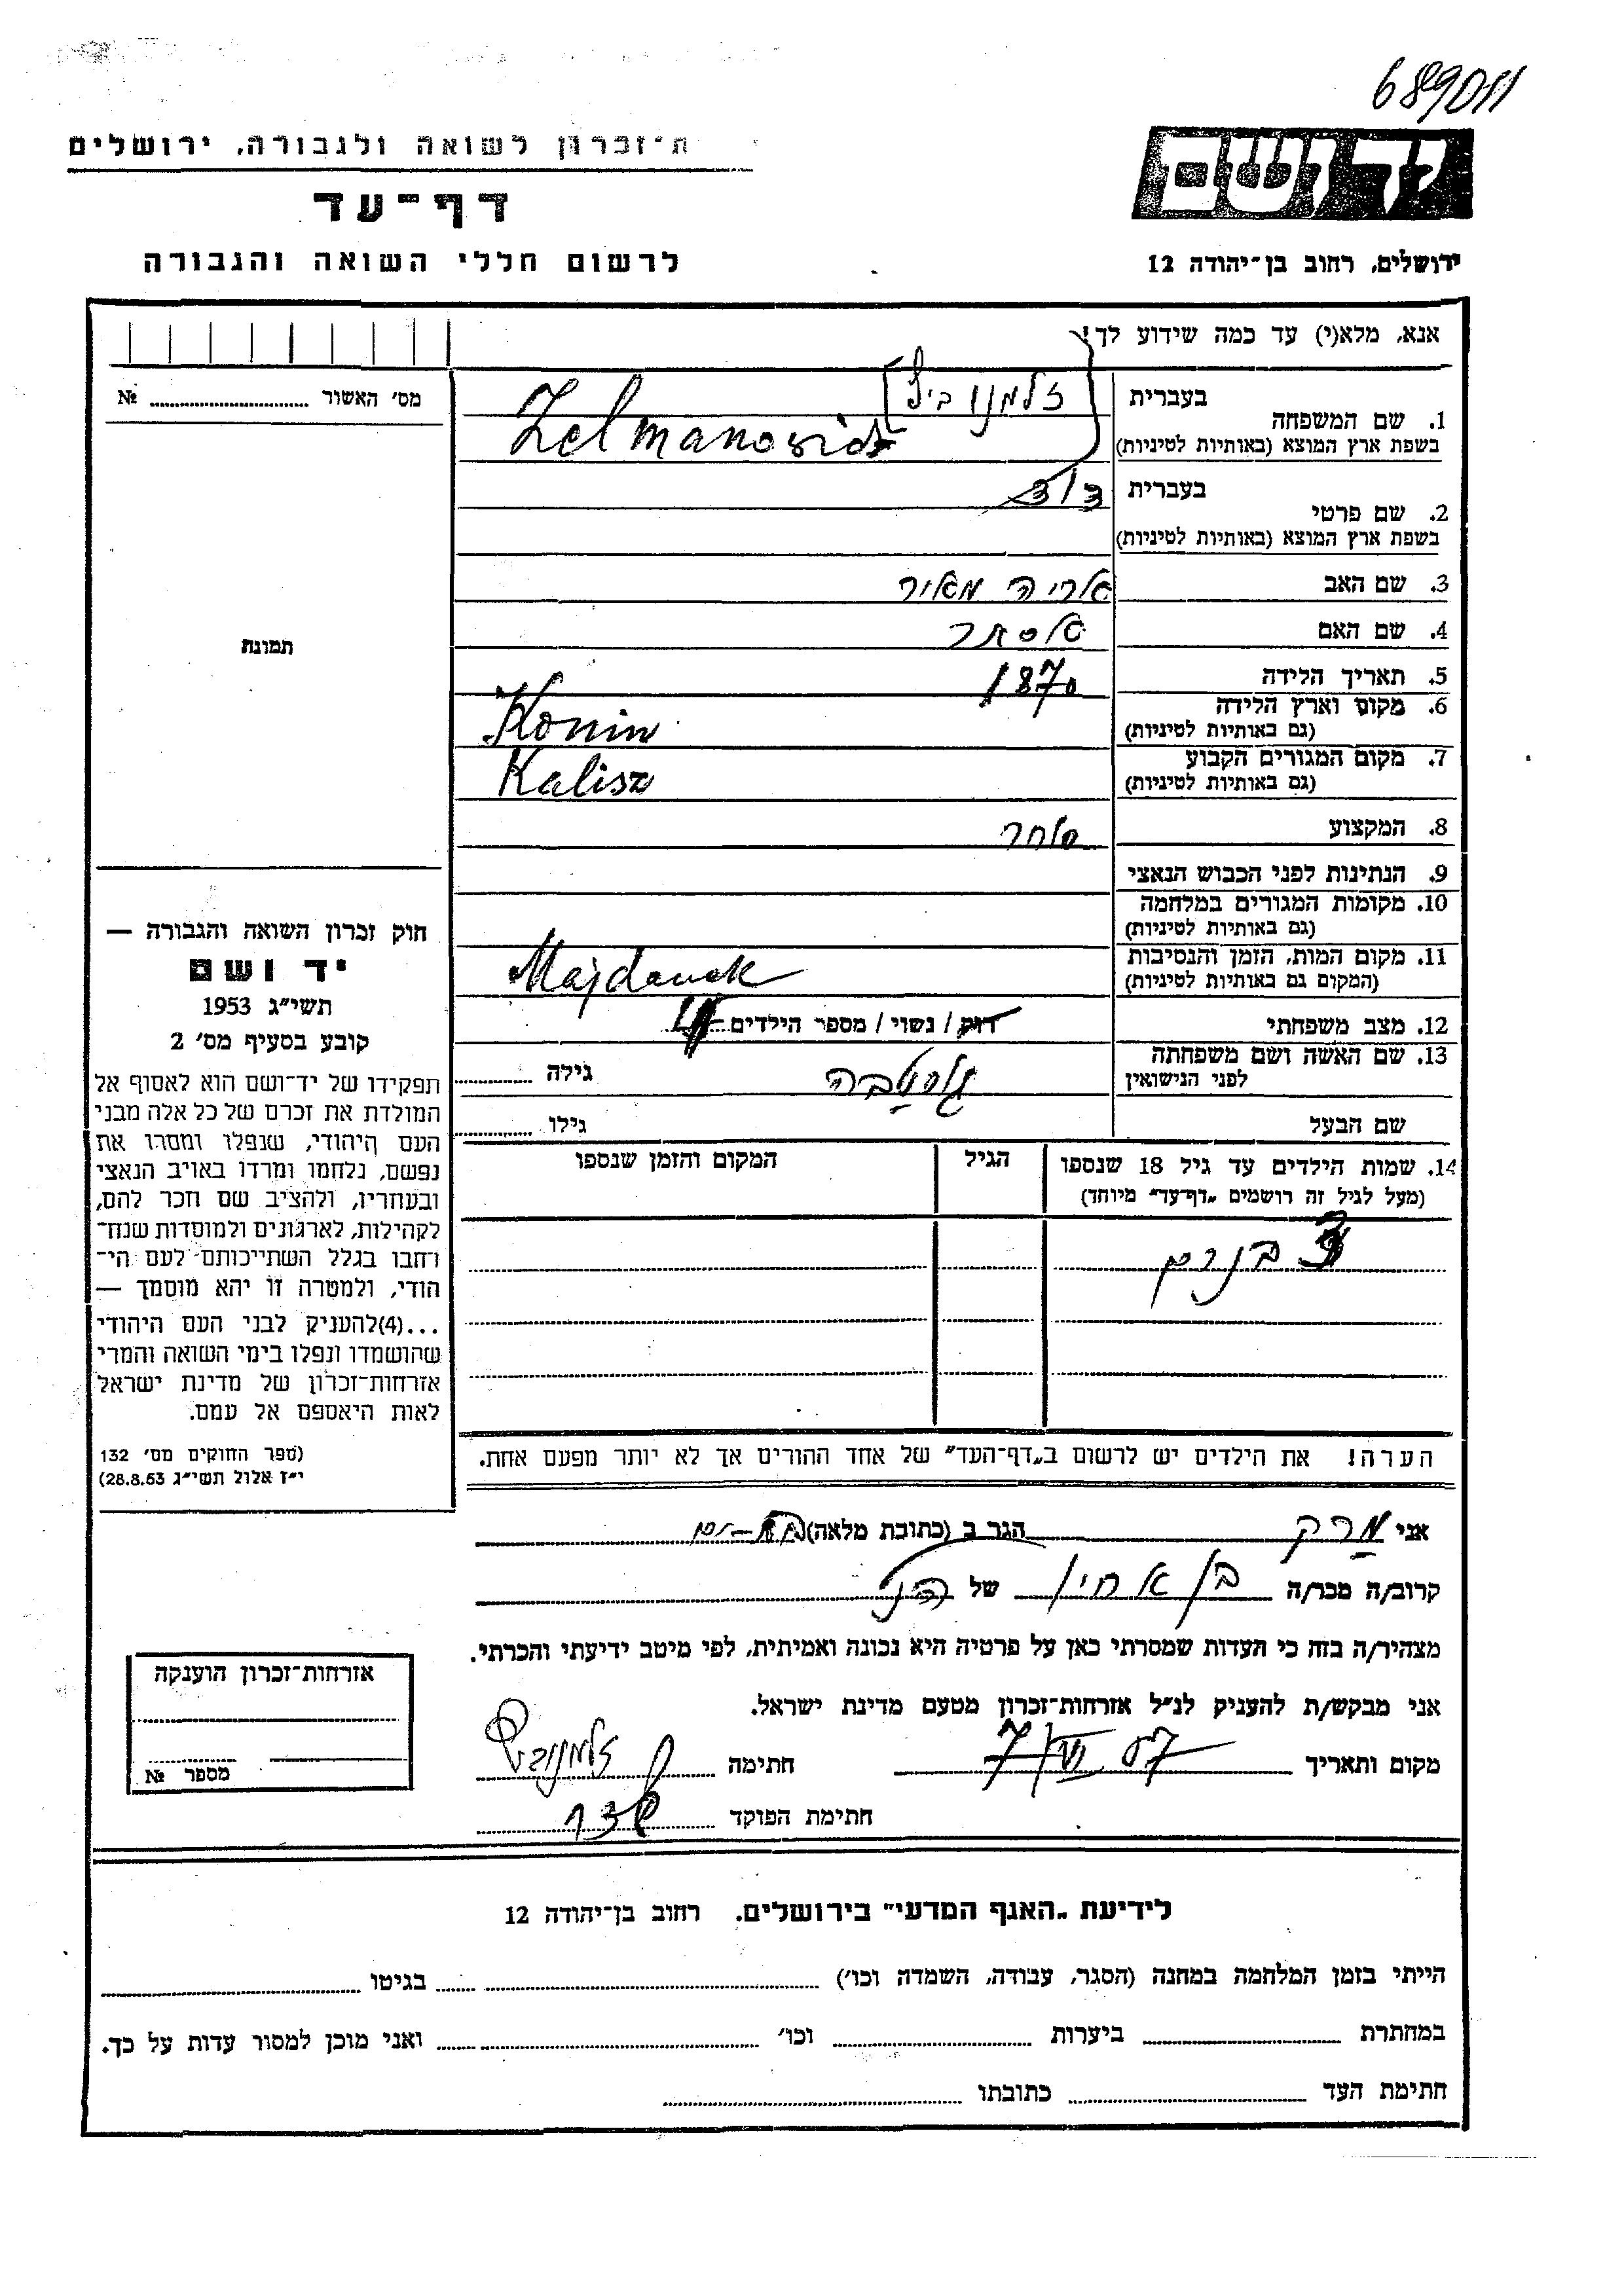 689011
ת־זכרון לשואה ולגבורה, ירושלים
דף־עד
לרשום חללי השואה והגבורה
ידושם
ירושלים, רחוב בן־יהודה 12
אנא, מלא(י) עד כמה שידוע לך!
מס׳ האשור № 
1. שם המשפחה
בעברית זלמנוביץ
בשפת ארץ המוצא (באותיות לטיניות) Zelmanowicz
2. שם פרטי
בעברית דוד
בשפת ארץ המוצא (באותיות לטיניות)
3. שם האב אריה מאיר
4. שם האם אסתר
5. תאריך הלידה 1870
6. מקום וארץ הלידה
(גם באותיות לטיניות) Konin
7. מקום המגורים הקבוע
(גם באותיות לטיניות) Kalisz
8. המקצוע סוחר
9. הנתינות לפני הכבוש הנאצי
10. מקומות המגורים במלחמה
(גם באותיות לטיניות)
11. מקום המות, הזמן והנסיבות
(המקום גם באותיות לטיניות) Majdanek
12. מצב משפחתי רוק / נשוי / מספר הילדים
13. שם האשה ושם משפחתה
לפני הנישואין גוסטבה גילה
שם הבעל גילו
14. שמות הילדים עד גיל 18 שנספו הגיל המקום והזמן שנספו
(מעל לגיל זה רושמים „דף־עד״ מיוחד)
3 בנים
הערה! את הילדים יש לרשום ב„דף־העד״ של אחד ההורים אך לא יותר מפעם אחת.
תמונת
חוק זכרון השואה והגבורה —
יד ושם
תשי״ג 1953
קובע בסעיף מס׳ 2
תפקידו של יד־ושם הוא לאסוף אל
המולדת את זכרם של כל אלה מבני
העם היהודי, שנפלו ומסרו את
נפשם, נלחמו ומרדו באויב הנאצי
ובעוזריו, ולהציב שם וזכר להם,
לקהילות, לארגונים ולמוסדות שנח־
רחבו בגלל השתייכותם לעם הי־
הודי, ולמטרה זו יהא מוסמך —
...(4)להעניק לבני העם היהודי
שהושמדו ונפלו בימי השואה והמרי
אזרחות־זכרון של מדינת ישראל
לאות היאספם אל עמם.
(ספר החוקים מס׳ 132
י״ז אלול תשי״ג 28.8.53)
אני מרק הגר ב (כתובת מלאה) בת-ים
קרוב/ה מכר/ה בן אחיו של הנ״ל
מצהיר/ה בזה כי העדות שמסרתי כאן על פרטיה היא נכונה ואמיתית, לפי מיטב ידיעתי והכרתי.
אני מבקש/ת להעניק לנ״ל אזרחות־זכרון מטעם מדינת ישראל.
מקום ותאריך חתימה זלמנוביץ
חתימת הפוקד
אזרחות־זכרון הוענקה
מספר №
לידיעת „האגף המדעי״ בירושלים, רחוב בן־יהודה 12
הייתי בזמן המלחמה במחנה (הסגר, עבודה, השמדה וכו׳) בגיטו
במחתרת ביערות וכו׳ ואני מוכן למסור עדות על כך.
חתימת העד כתובתו